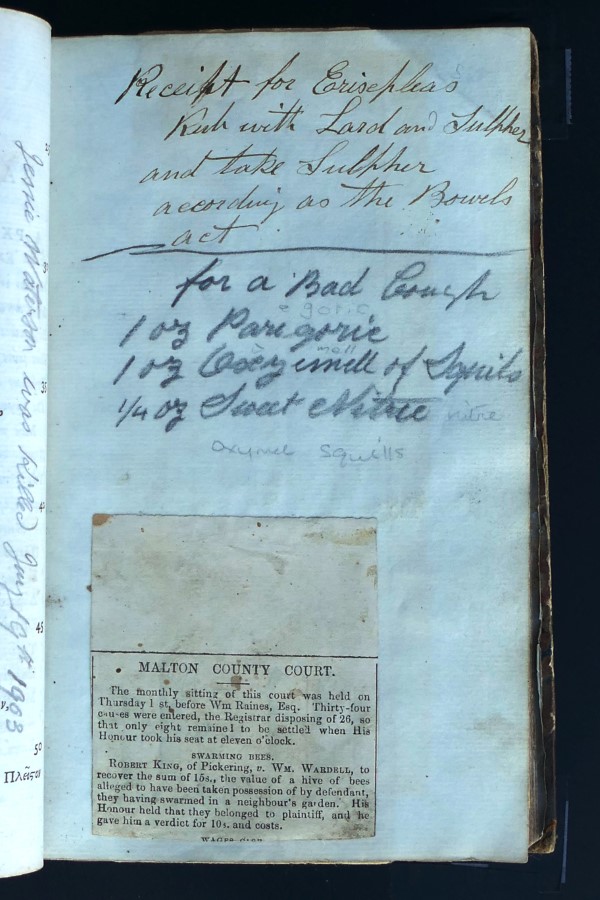 Receipt for Erisephas
Rub with Lard and Sulpher
and take Sulpher
according as the Bowels
act
for a Bad Cough
goric
1 oz Parigoric
mell
1 oz Oxzymell of Squils
1/4 oz Sweet Nitre nitre
oxymel squills
MALTON COUNTY COURT.
The monthly sitting of this court was held on
Thursday last, before Wm Raines, Esq. Thirty-four
causes were entered, the Registrar disposing of 26, so
that only eight remained to be settled when His
Honour took his seat at eleven o'clock.
SWARMING BEES.
ROBERT KING, of Pickering, v. WM. WARDELL, to
recover the sum of 15s., the value of a hive of bees
alleged to have been taken possession of by defendant,
they having swarmed in a neighbour's garden. His
Honour held that they belonged to plaintiff, and he
gave him a verdict for 10s. and costs.
Jessie Watson was killed Jany 19th 1903
45
50
Πλεῖστοι